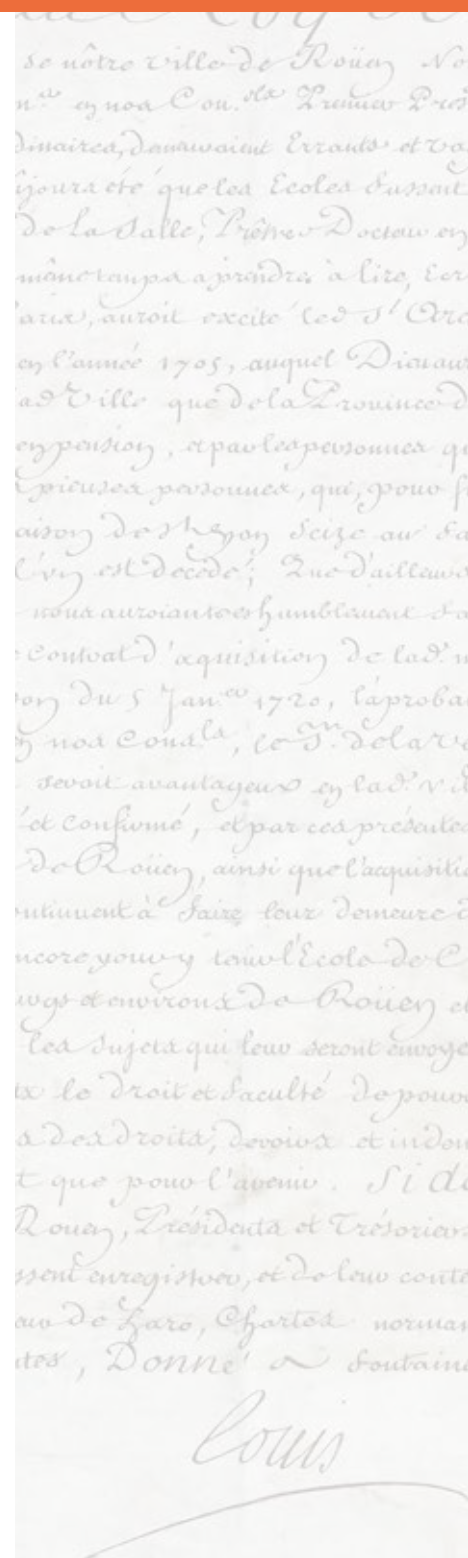 de nôtre ville de Roüen No
en nos Con.
dinaires, demeuroient Errants et va
ujours été que les Ecoles fussent
de la Salle, Prêtre Docteur en
même temps aprendre à lire, Ecr
Paris, auroit excité led. S.r Arc
en l'année 1705, auquel
lad Ville que de la Province d
en pension, et par les personnes qu
pieuses personnes, qui, pour f
aison de S.t Yon Seize au fa
l'un est decedé; Que d'ailleurs
nous auroient tres humblement fa
Contrat d'aquisition de lad. m
Yon du 5 Jan.er 1720, l'aproba
en nos Con.ls, le S.r de la v
seroit avantageux en lad. vi
et Confirmé, et par ces présentes
de Roüen, ainsi que l'acquisitio
ontinuent à faire leur demeure d
ncore pour y tenir l'Ecole de C
urgs et environs de Roüen et
les Sujets qui leur seront envoye
le Droit et faculté de pouvo
des droits, devoirs et indem
t que pour l'avenir. Si do
Rouen, Présidents et Trésoriers
ssent enregistrer, et de leur conte
eur de Haro, Chartes norman
tes, Donné a fontaine
Louis